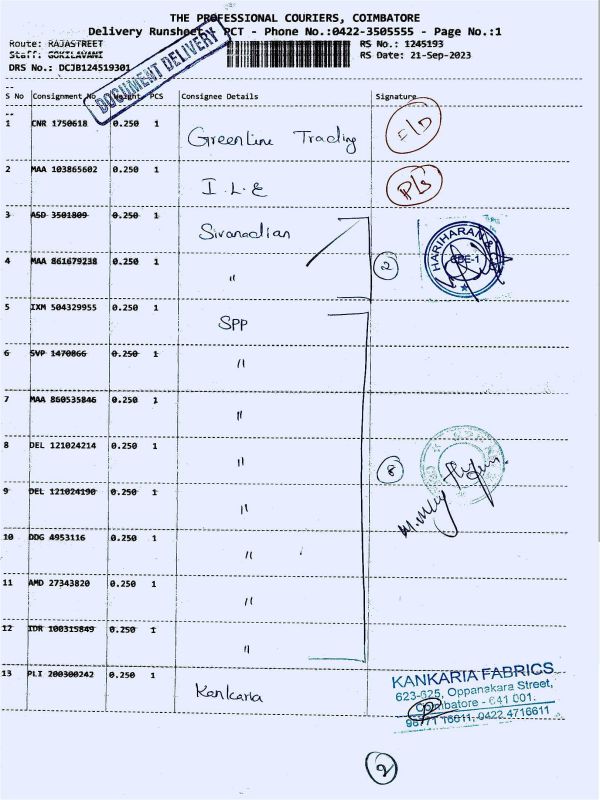 THE PROFESSIONAL COURIERS, COIMBATORE
Delivery Runsheet - PCT - Phone No.:0422-3505555 - Page No.:1
Route: RAJASTREET RS No.: 1245193
Staff: GOKILAVANI RS Date: 21-Sep-2023
DRS No.: DCJB124519301
DOCUMENT DELIVERY
S No Consignment No Weight PCS Consignee Details Signature
1 CNR 1750618 0.250 1 Greenline Trading
2 MAA 103865602 0.250 1 I.L.E
3 ASD 3501809 0.250 1 Sivanadian
4 MAA 861679238 0.250 1 " 2 HARIHARAN & CO CBE-1
5 IXM 504329955 0.250 1 SPP
6 SVP 1470866 0.250 1 "
7 MAA 860535846 0.250 1 "
8 DEL 121024214 0.250 1 " 8
9 DEL 121024190 0.250 1 "
10 DDG 4953116 0.250 1 "
11 AMD 27343820 0.250 1 "
12 IDR 100315849 0.250 1 "
13 PLI 200300242 0.250 1 Kankaria
KANKARIA FABRICS
623-625, Oppanakara Street,
Coimbatore - 641 001.
96771 16611, 0422 4716611